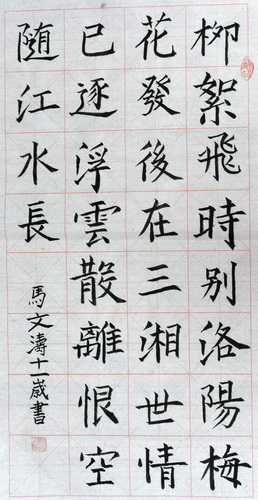 柳絮飛時别洛陽梅
花發後在三湘世情
已逐浮雲散離恨空
随江水長
馬文濤十一歲書